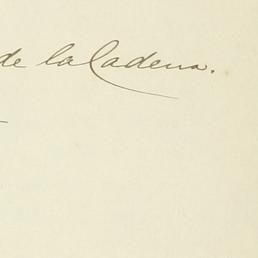 de la Cadena.